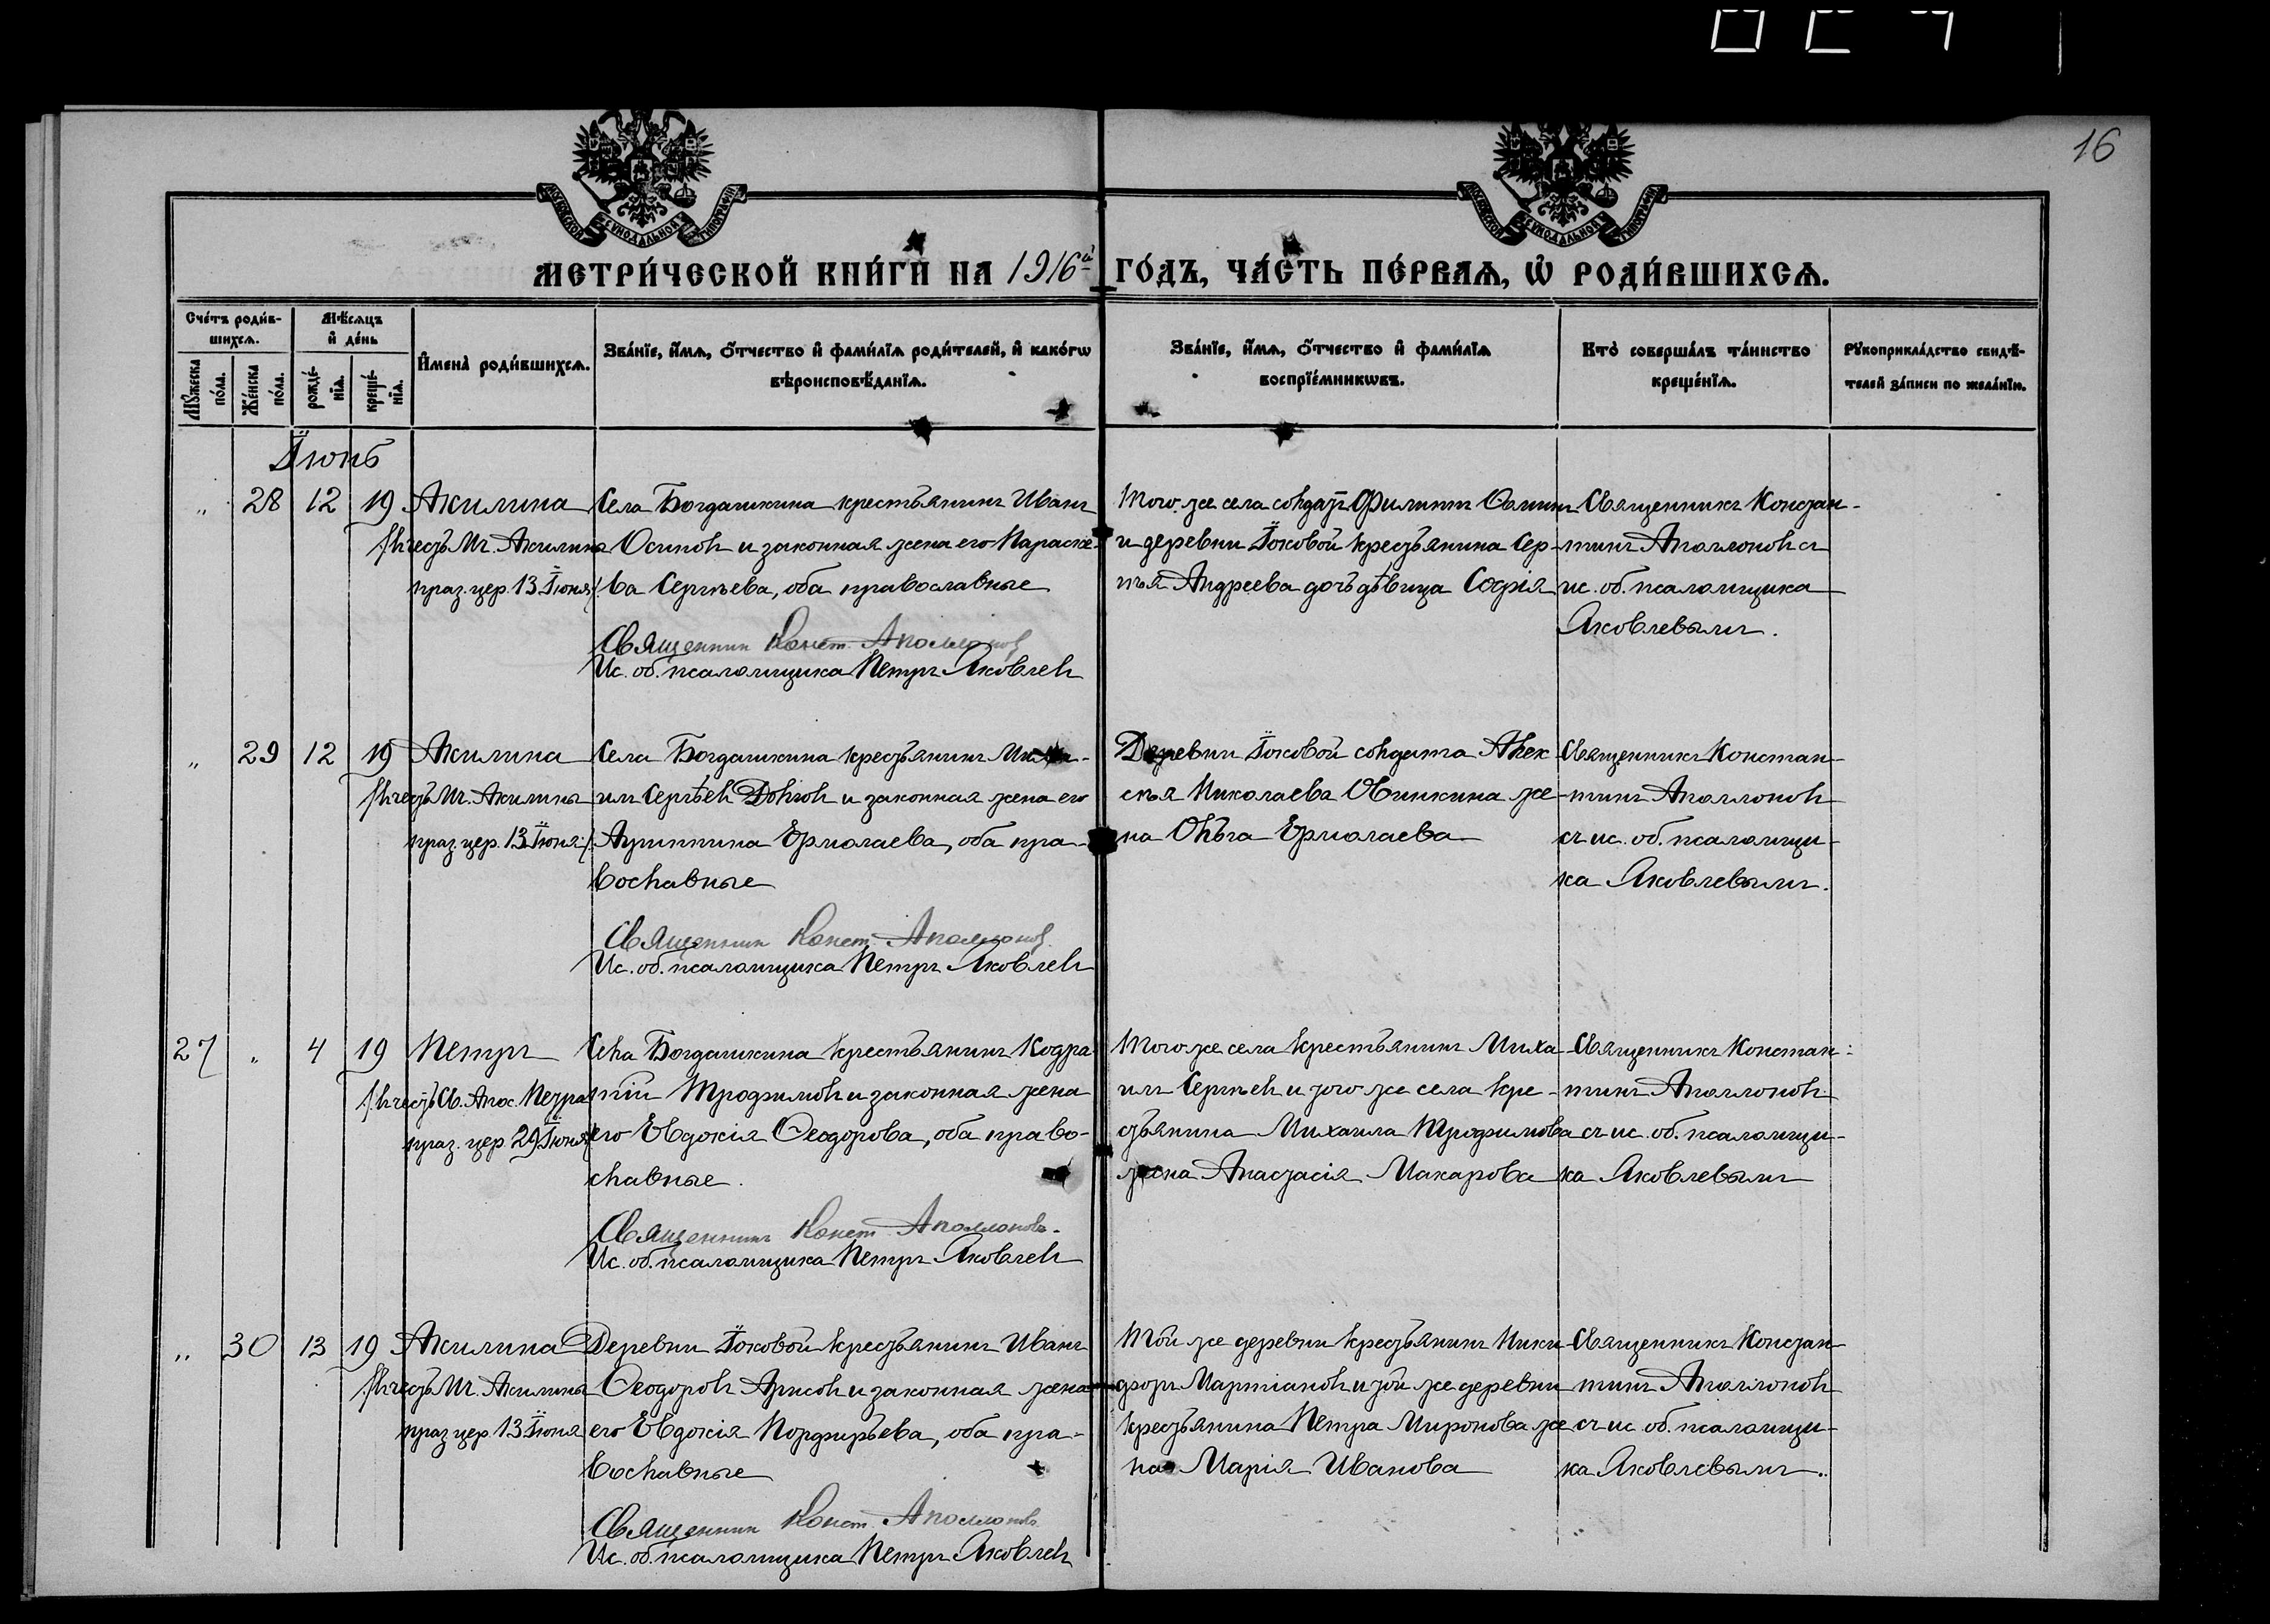 16
МОСКОВСКОЙ СѴНОДАЛЬНОЙ ТИПОГРАФІИ
МОСКОВСКОЙ СѴНОДАЛЬНОЙ ТИПОГРАФІИ
МЕТРИ́ЧЕСКОЙ КНИ́ГИ НА 1916й ГО́ДЪ, ЧА́СТЬ ПЕ́РВАѦ, Ѡ҆ РОДИ́ВШИХСѦ.
Сче́тъ роди́в-
шихсѧ.
Мѣ́сѧцъ
и҆ де́нь
Мꙋ́жеска
по́ла.
Же́нска
по́ла.
рожде́-
нїѧ.
креще́-
нїѧ.
И҆мена̀ роди́вшихсѧ.
Зва́нїе, и҆́мѧ, ѻ҆́тчество и҆ фами́лїѧ роди́телей, и҆ како́гѡ
вѣроисповѣ́данїѧ.
Зва́нїе, и҆́мѧ, ѻ҆́тчество и҆ фами́лїѧ
воспрїе́мникѡвъ.
Кто̀ соверша́лъ та́инство
креще́нїѧ.
Рꙋкоприкла́дство свидѣ́-
телей за́писи по жела́нїю.
Іюнь
„ 28 12 19 Акилина
/въ честь Мч. Акилина
праз. цер. 13 Іюня/
Села Богдашкина крестьянинъ Иванъ
Осиповъ и законная жена его Параске-
ва Сергѣева, оба православные
Священник Конст. Аполлонов
Ис. об. псаломщика Петръ Яковлевъ
Того-же села солдатъ Филиппъ
и деревни Іоковой крестьянина Сер-
гѣя Андреева дочь дѣвица Софія
Священникъ Констан-
тинъ Аполлоновъ съ
ис. об. псаломщика
Яковлевымъ.
„ 29 12 19 Акилина
/въ честь Мч. Акилины
праз. цер. 13 Іюня/
Села Богдашкина крестьянинъ
илъ Сергѣевъ Долговъ и законная жена его
Агриппина Ермолаева, оба пра-
вославные
Священник Конст. Аполлонов
Ис. об. псаломщика Петръ Яковлевъ
Деревни Іоковой солдата Алек
сѣя Николаева Овинкина же-
на Ольга Ермолаева
Священникъ Констан-
тинъ Аполлоновъ
съ ис. об. псаломщи-
ка Яковлевымъ.
27 „ 4 19 Петръ
/въ честь Св. Апос. Петра
праз. цер. 29 Іюня/
Села Богдашкина крестьянинъ Кодра-
тій Трофимовъ и законная жена
его Евдокія Ѳеодорова, оба право-
славные.
Священникъ Конст Аполлоновъ.
Ис. об. псаломщика Петръ Яковлевъ
Того же села крестьянинъ Миха-
илъ Сергѣевъ и того же села кре-
стьянина Михаила Трофимова
жена Анастасія Макарова
Священникъ Констан-
тинъ Аполлоновъ
съ ис. об. псаломщи-
ка Яковлевымъ
„ 30 13 19 Акилина
/въ честь Мч. Акилины
праз. цер. 13 Іюня
Деревни Іоковой крестьянинъ Иванъ
Ѳеодоровъ и законная жена
его Евдокія Порфирьева, оба пра-
вославные
Священник Конст. Аполлоновъ
Ис. об. псаломщика Петръ Яковлевъ
Той же деревни крестьянинъ Ники-
форъ Мартіановъ и той же деревни
крестьянина Петра Миронова же
на Марія Иванова
Священникъ Констан-
тинъ Аполлоновъ
съ ис. об. псаломщи-
ка Яковлевымъ.